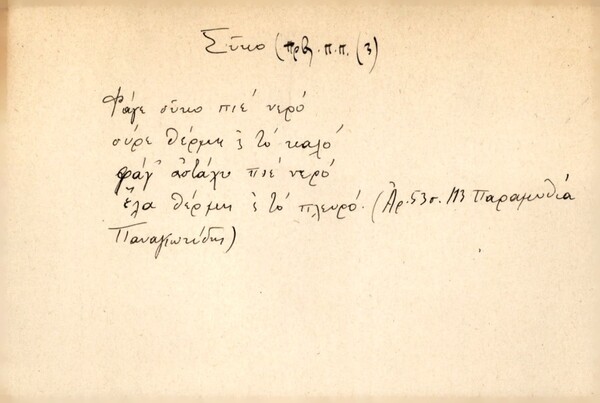 Σῦκο (πρβ. π.π. (3)
Φάγε σῦκο πιέ νερό
σύρε θέρμη ς τό καλό
φάγ' ἀστάχυ πιέ νερό
ἔλα θέρμη ς τό πλευρό. (Ἀρ. 53 σ. 113 Παραμυθιά
Παναγιωτίδης)